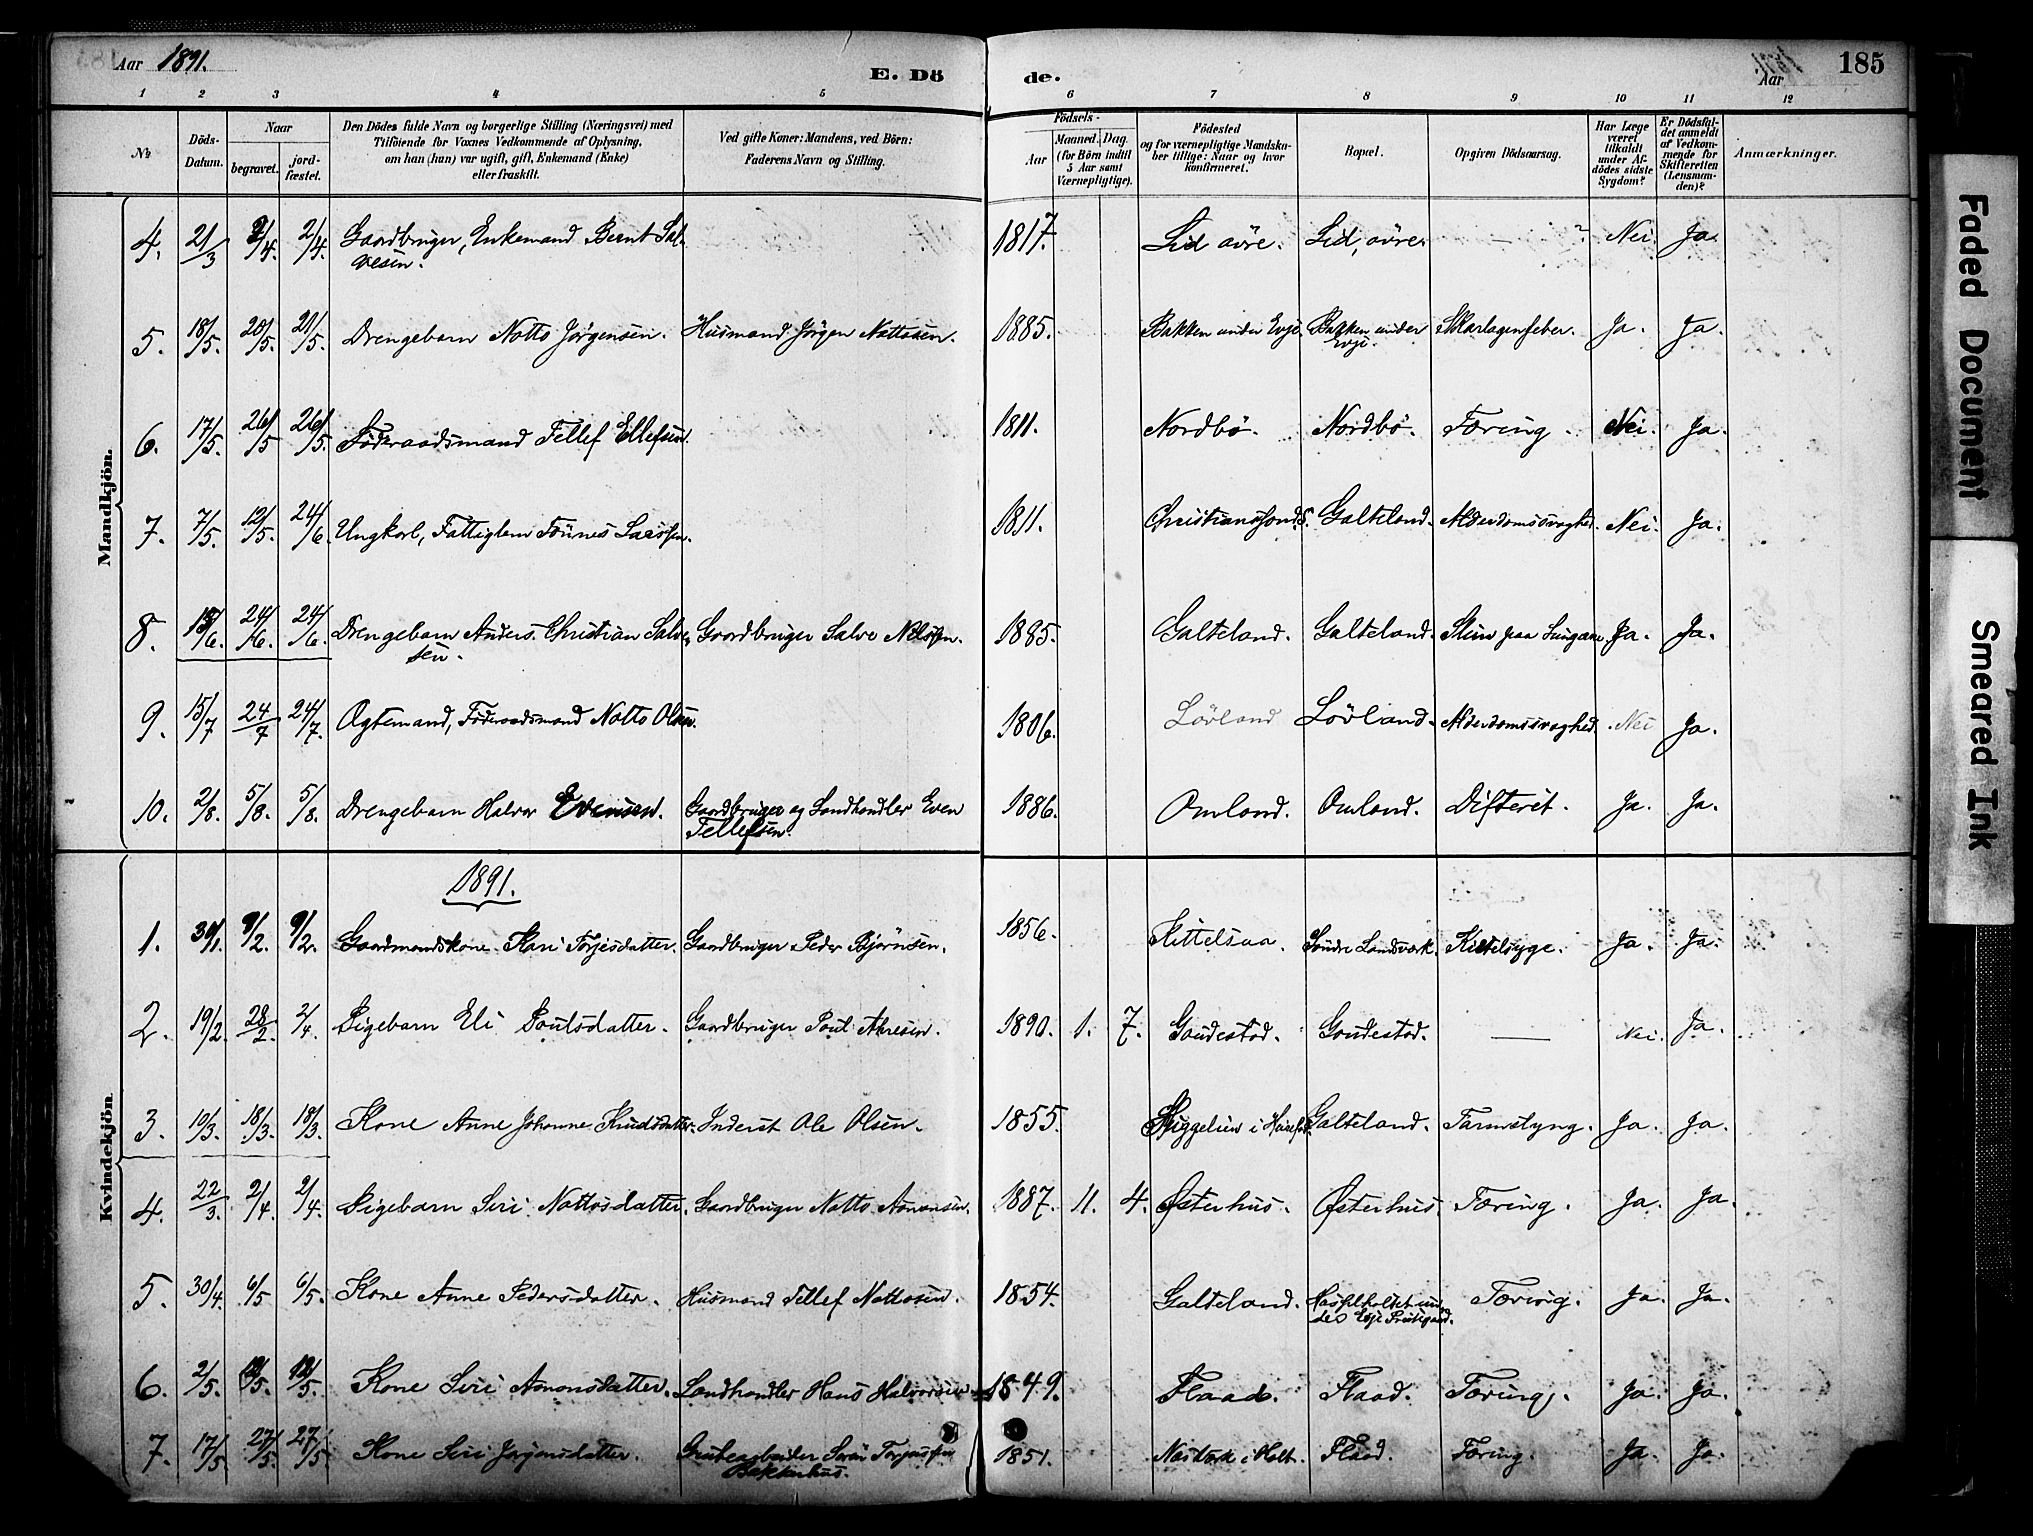 Aar 1891.
E. Dö
de.
Aar
185
1 2 3 4 5 6 7 8 9 10 11 12
No
Döds-Datum.
Naar
begravet.
jord-fæstet.
Den Dödes fulde Navn og borgerlige Stilling (Næringsvei) med
Tilföiende for Voxnes Vedkommende af Oplysning,
om han (hun) var ugift, gift, Enkemand (Enke)
eller fraskilt.
Ved gifte Koner: Mandens, ved Börn:
Faderens Navn og Stilling.
Födsels-
Aar
Maaned. Dag.
(for Börn indtil
5 Aar samt
Værnepligtige).
Födested
og for værnepligtige Mandska-
ber tillige: Naar og hvor
konfirmeret.
Bopæl.
Opgiven Dödsaarsag.
Har Læge
været
tilkaldt
under Af-
dödes sidste
Sygdom?
Er Dödsfal-
det anmeldt
af Vedkom-
mende for
Skifteretten
(Lensman-
den)?
Anmærkninger.
Mandkjön.
4. 21/3 2/4. 2/4. Gaardbruger, Enkemand Bernt Sal-
vesen. 1817. Lid øvre. Lid, øvre. — ? Nei. Ja.
5. 18/5. 20/5. 20/5. Drengebarn Notto Jørgensen. Husmand Jørgen Nottosen. 1885. Bakken under Evje. Bakken under
Evje. Skarlagensfeber. Ja. Ja.
6. 17/5. 26/5 26/5. Føderaadsmand Tellef Ellefsen. 1811. Nordbö. Nordbö. Tæring. Nei. Ja.
7. 7/5. 12/5. 24/6 Ungkarl, Fattiglem Tønnes Larssen. 1811. Christianssand S. Galteland. Alderdomssvaghed. Nei. Ja.
8. 15/6. 24/6. 24/6. Drengebarn Anders Christian Salve-
sen. Gaardbruger Salve Nilssen. 1885. Galteland. Galteland. Sliim paa Lungerne Ja. Ja.
9. 15/7 24/7 24/7. Ægtemand, Føderaadsmand Notto Olsen. 1806. Lövland Lövland. Alderdomssvaghed. Nei Ja.
10. 2/8. 5/8. 5/8. Drengebarn Halvor Evensen. Gaardbruger og Landhandler Even
Tellefsen. 1886. Omland. Omland. Difterit. Ja. Ja.
Kvindekjön.
1891.
1. 30/1. 9/2. 9/2. Gaardmandskone Kari Torjesdatter. Gaardbruger Peder Bjørnsen. 1856. Kittelsaa. Søndre Landsværk. Kirtelsyge. Ja. Ja.
2. 19/2. 28/2. 2/4. Pigebarn Eli Poulsdatter. Gaardbruger Poul Aanesen. 1890. 1. 7. Gaudestad. Gaudestad. — Nei. Ja.
3. 10/3. 18/3. 18/3. Kone Anne Johanne Knudsdatter. Inderst Ole Olsen. 1855. Galteland. Tarmslyng. Ja. Ja.
4. 22/3. 2/4. 2/4. Pigebarn Siri Nottosdatter. Gaardbruger Notto Aanonsen. 1887. 11. 4. Østerhus. Østerhus. Tæring. Ja. Ja.
5. 30/4. 6/5 6/5. Kone Anne Pedersdatter. Husmand Tellef Nottosen. 1854. Galteland. Evje Præstegaard. Tæring. Ja. Ja.
6. 2/5. 12/5. 12/5. Kone Siri Aanonsdatter. Landhandler Hans Halvorsen 1849. Flaad. Flaad. Tæring. Ja. Ja.
7. 17/5 27/5. 27/5. Kone Siri Jørgensdatter. Grubearbeider Søren Torjussen
Bakkenhus. 1851. i Holt. Flaad. Tæring. Ja. Ja.
Faded Document
Smeared Ink